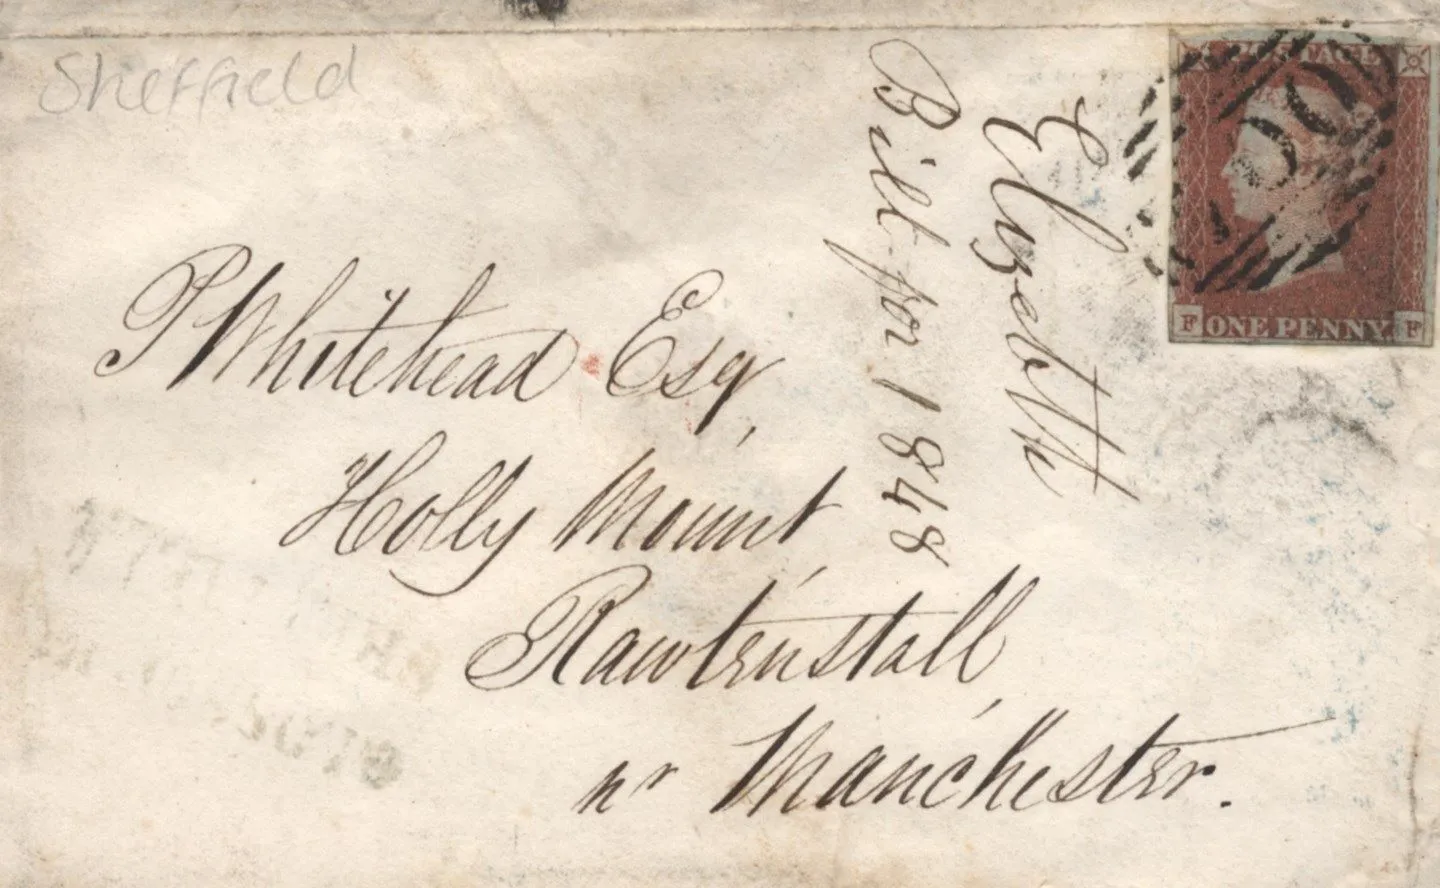 Sheffield
POSTAGE
F ONE PENNY. F
Bill for 1848
P Whitehead Esq,
Holly Mount,
Rawtenstall,
nr Manchester.